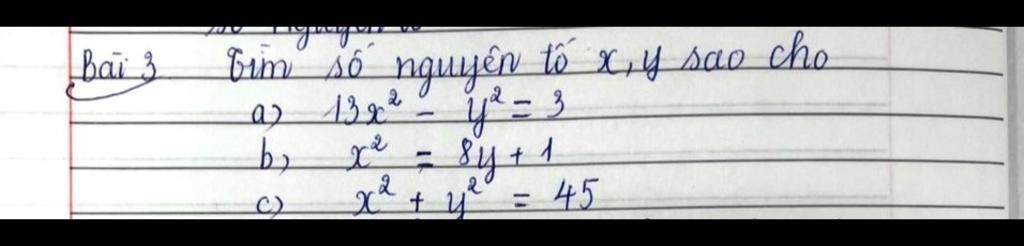 Bài 3 Tìm số nguyên tố x, y sao cho
a) 13x² - y² = 3
b) x² = 8y + 1
c) x² + y² = 45